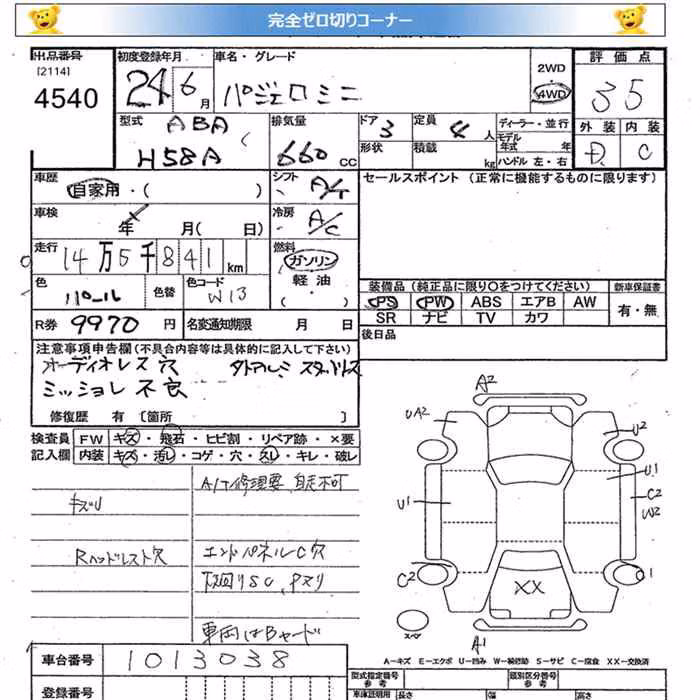 完全ゼロ切りコーナー
出品番号 初度登録年月 車名・グレード 評価点
[2114]
4540 24年6月 パジェロミニ 2WD 4WD 35
型式 ABA 排気量 ドア 3 定員 4人 ディーラー・並行 外装 内装
H58A 660cc 形状 積載 kg モデル年式 年 D C
ハンドル 左・右
車歴 自家用・( ) シフト A/T セールスポイント (正常に機能するものに限ります)
車検 年 月( 日) 冷房 A/C
走行 14万5千841km 燃料 ガソリン
軽油
・( )
色 パール 色替 色コード W13
装備品 (純正品に限り○をつけてください) 新車保証書
PS PW ABS エアB AW 有・無
SR ナビ TV カワ
R券 9970円 名変通知期限 月 日 後日品
注意事項申告欄 (不具合内容等は具体的に記入して下さい)
オーディオレス穴
ミッション不良
修復歴 有 〔箇所 〕
検査員 FW キズ・飛石・ヒビ割・リペア跡・×要
記入欄 内装 キズ・汚レ・コゲ・穴・スレ・キレ・破レ
A/T修理要 自走不可
キズU
Rヘッドレスト穴 エンドパネルC穴
下回りSC、Pヌリ
車両はBヤード
A2
UA2 U2
U1 U1
C2
W2
C2 XX
スペ
A1
A—キズ E—エクボ U—凹み W—補修跡 S—サビ C—腐食 XX—交換済
車台番号 1013038 型式指定番号 参考 類別区分番号 参考
登録番号 車庫証明用 長さ 幅 高さ